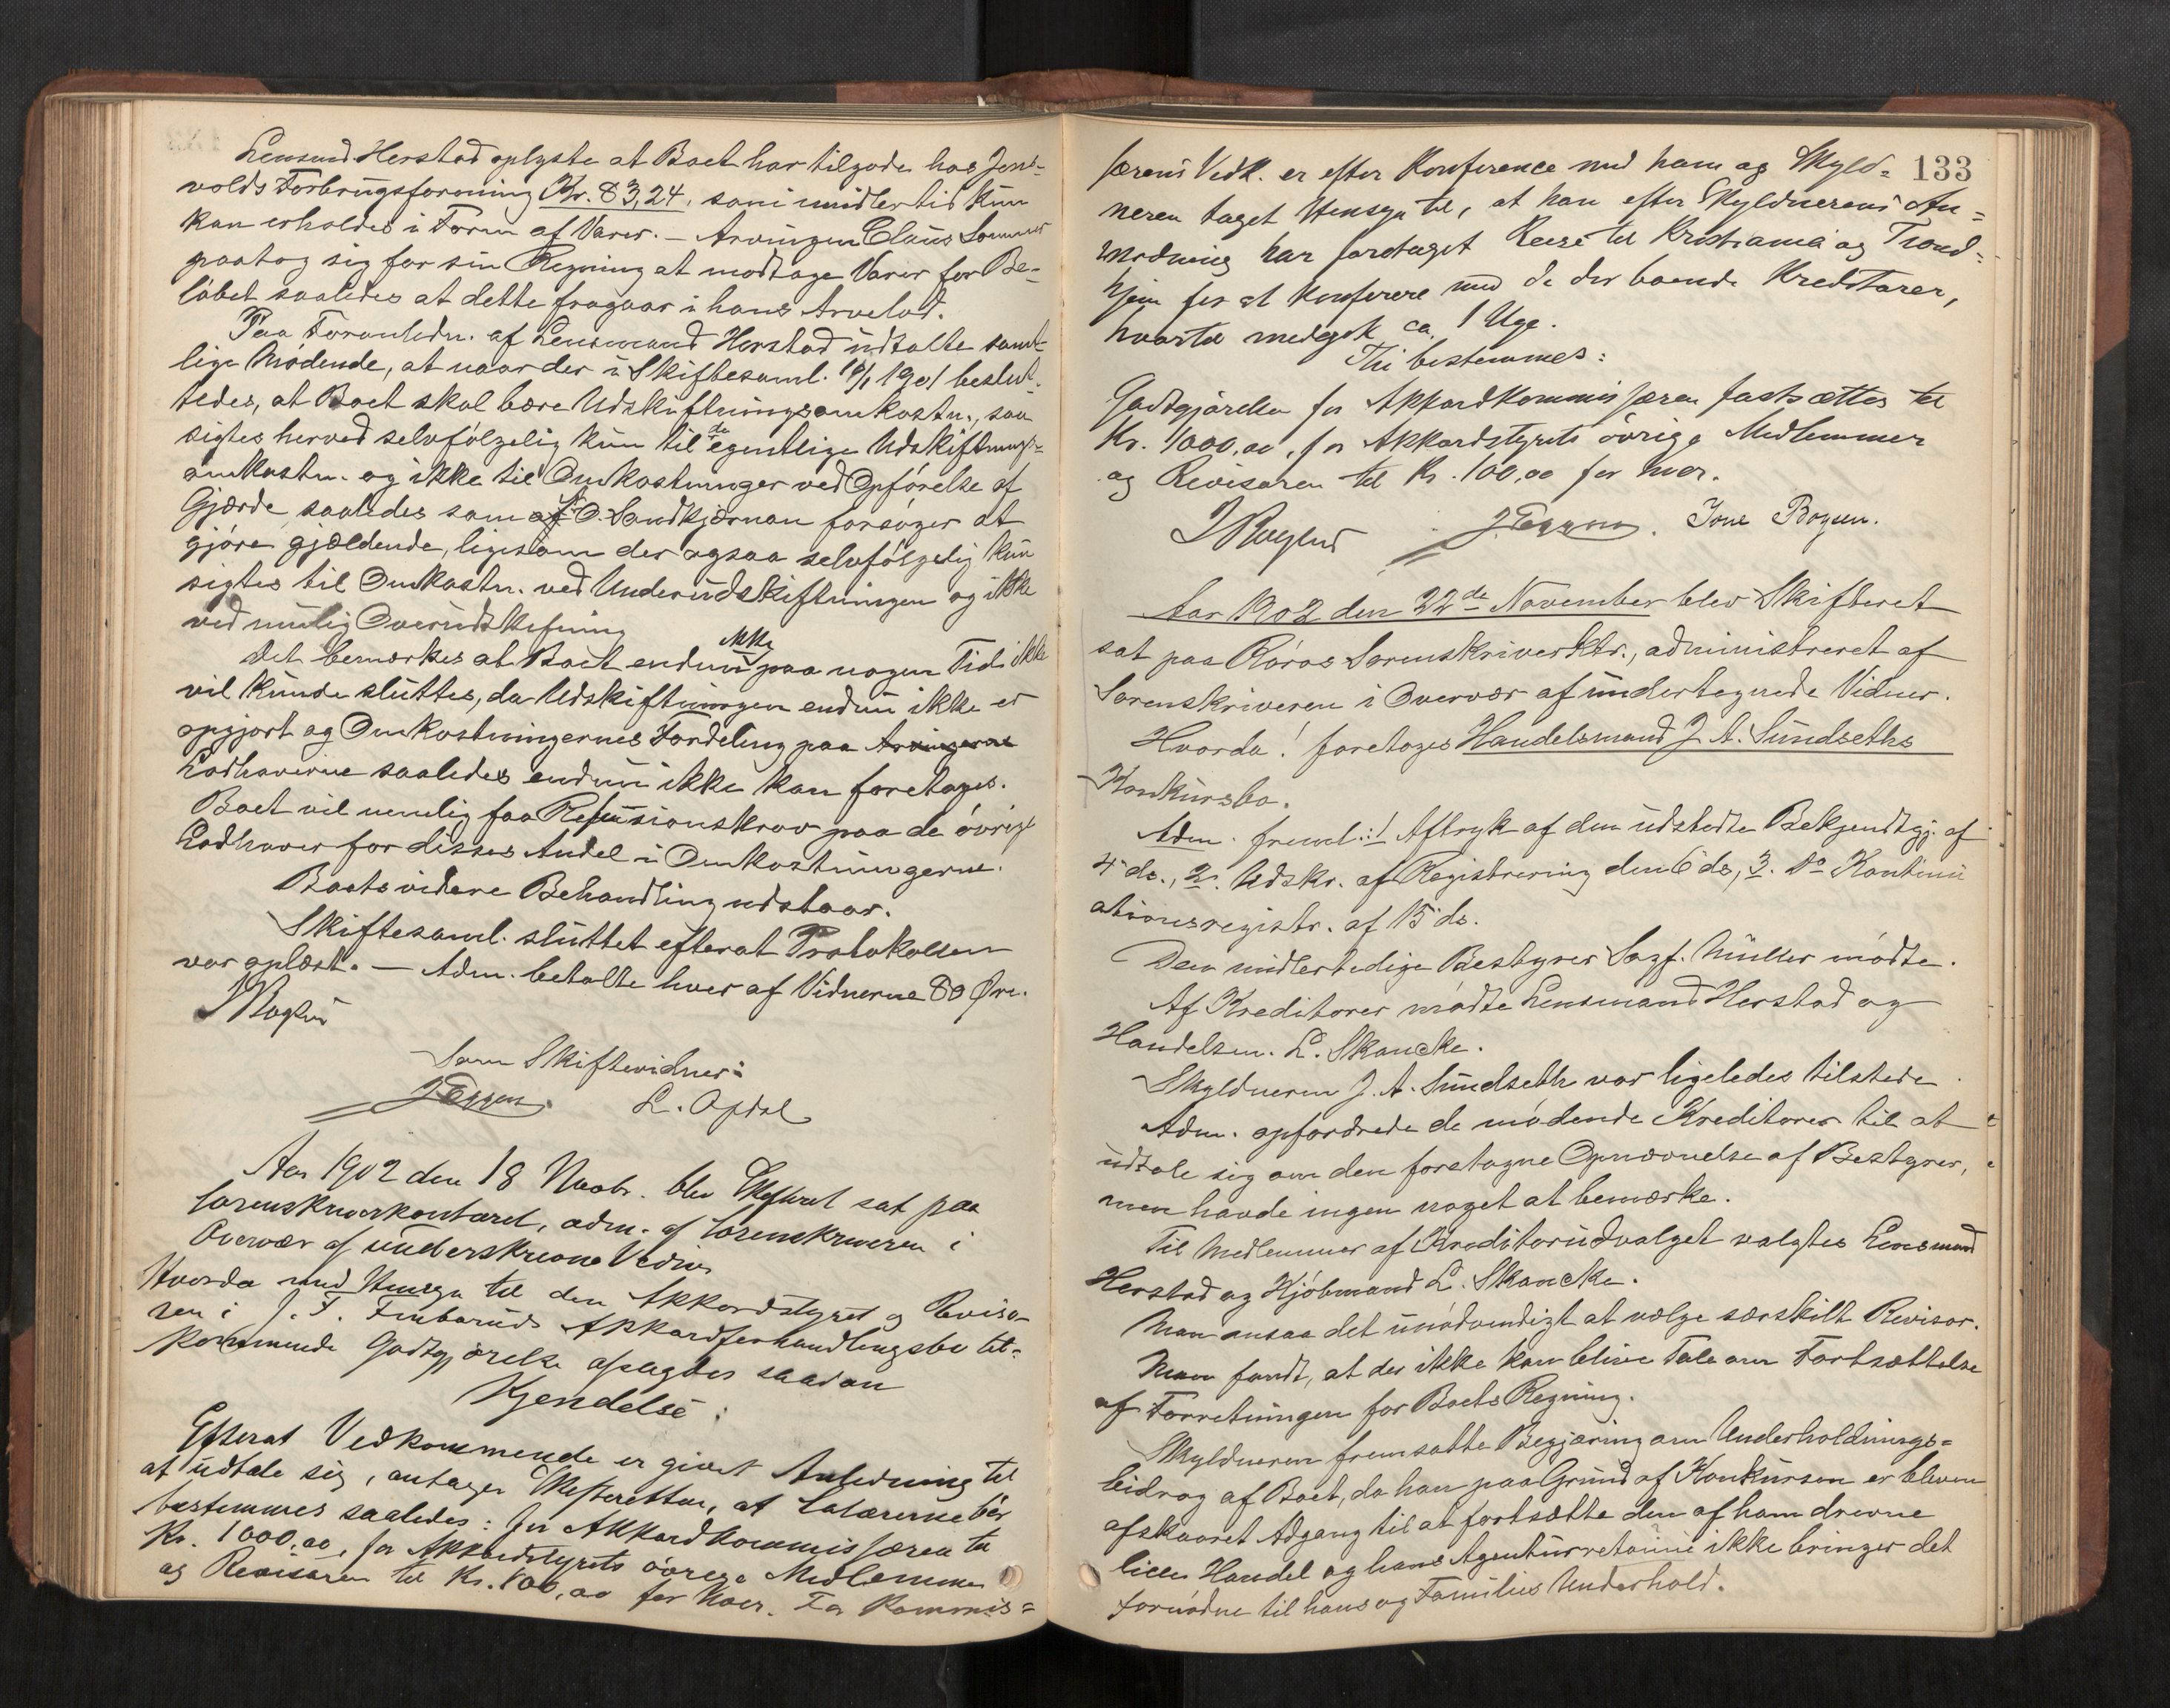 Lensmd. Herstad oplyste at Boet har tilgode hos Jens-
volds Forbrugsforening Kr. 83,24, som imidlertid kun
kan erholdes i Form af Varer. – Arvingen Claus Sommer
paatog sig for sin Regning at modtage Varer for Be-
løbet saaledes at dette fragaar i hans Arvelod.
Paa Foranledn. af Lensmand Herstad udtalte samt-
lige Mødende, at naar der i Skiftesaml. 1901 beslut-
tedes, at Boet skal bære Udskiftningsomkostn., saa
sigtes herved selvfølgelig kun til de egentlige Udskiftnings-
omkostn. og ikke til Omkostninger ved Opførelse af
Gjærde saaledes som O. Sandkjærnan forsøger at
gjøre gjældende, ligesom der ogsaa selvfølgelig kun
sigtes til Omkostn. ved Underudskiftningen og ikke
ved mulig Overudskiftning
Det bemærkes at Boet endnu ikke paa nogen Tid ikke
vil kunde sluttes, da Udskiftningen endnu ikke er
opgjort og Omkostningernes Fordeling paa Arvingerne
Lodhaverne saaledes endnu ikke kan foretages.
Boet vil nemlig faa Refusionskrav paa de øvrige
Lodhaver for disses Andel i Omkostningerne.
Boets videre Behandling udstaar.
Skiftesaml. sluttet efterat Protokollen
var oplæst. – Adm. betalte hver af Vidnerne 80 Øre.
Som Skiftevidner:
J Eggen. L. Opdal
Aar 1902 den 18 Novbr. blev Skifteret sat paa
Sorenskriverkontoret, adm. af Sorenskriveren i
Overvær af underskrevne Vidner
Hvorda med Hensyn til den Akkordstyret og Reviso-
ren i J. F. Finbaruds Akkordforhandlingsbo til-
kommende Godtgjørelse afsagdes saadan
Kjendelse:
Efterat Vedkommende er givet Anledning til
at udtale sig, antager Skifteretten, at Salærerne bør
bestemmes saaledes: for Akkordkommissæren til
Kr. 1000,00, for Akkordstyrets øvrige Medlemmer
og Revisoren til Kr. 100,00 for hver. For Kommis=
133
særens Vedk. er efter Konference med ham og Skyld=
neren taget Hensyn til, at han efter Skyldnerens An=
modning har foretaget Reise til Kristiania og Trond=
hjem for at konferere med de der boende Kreditorer,
hvortil medgik ca. 1 Uge.
Thi bestemmes:
Godtgjørelsen for Akkordkommissæren fastsættes til
Kr. 1000,00, for Akkordstyrets øvrige Medlemmer
og Revisoren til Kr. 100,00 for hver.
J Eggen. Jone Bozen.
Aar 1902 den 22de November blev Skifteret
sat paa Røros Sorenskriverktr., administreret af
Sorenskriveren i Overvær af undertegnede Vidner.
Hvorda! foretoges Handelsmand J. A. Sundseths
Konkursbo.
Adm. freml.: 1 Aftryk af den udstedte Bekjendtgj. af
4 ds., 2. Udskr. af Registrering den 6 ds, 3. Do Kontinu
ationsregistr. af 15 ds.
Den midlertidige Bestyrer Sagf. Müller mødte.
Af Kreditorer mødte Lensmand Herstad og
Handelsm. L. Skancke.
Skyldneren J. A. Sundseth var ligeledes tilstede
Adm. opfordrede de mødende Kreditorer til at
udtale sig om den foretagne Opnævnelse af Bestyrer,
men havde ingen noget at bemærke.
Til Medlemmer af Kreditorudvalget valgtes Lensmand
Herstad og Kjøbmand L. Skancke.
Man ansaa det unødvendigt at vælge særskilt Revisor.
Man fandt, at der ikke kan blive Tale om Fortsættelse
af Forretningen for Boets Regning.
Skyldneren fremsatte Begjæring om Underholdnings=
bidrag af Boet, da han paa Grund af Konkursen er bleven
afskaaret Adgang til at fortsætte den af ham drevne
lille Handel og hans Agenturretninie ikke bringer det
fornødne til hans og Families Underhold.